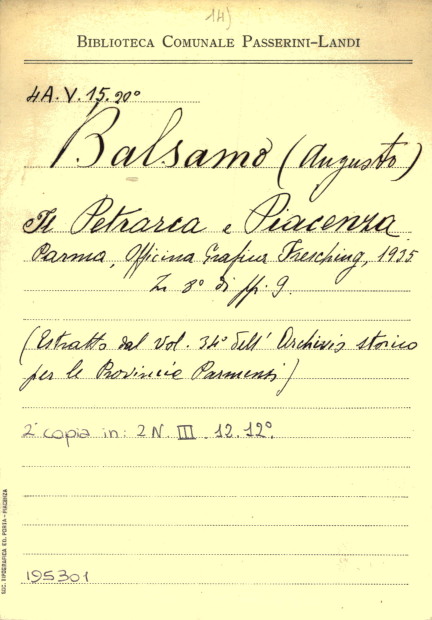 14)
BIBLIOTECA COMUNALE PASSERINI-LANDI
4A.V.15.20°
Balsamo (Augusto)
Il Petrarca e Piacenza
Parma, Officina Grafica Fresching, 1935
In 8° di pp. 9.
(Estratto dal vol. 34° dell' Archivio storico
per le Provincie Parmensi)
2ª copia in: 2 N. III. 12.12°.
195301
SOC. TIPOGRAFICA ED. PORTA - PIACENZA